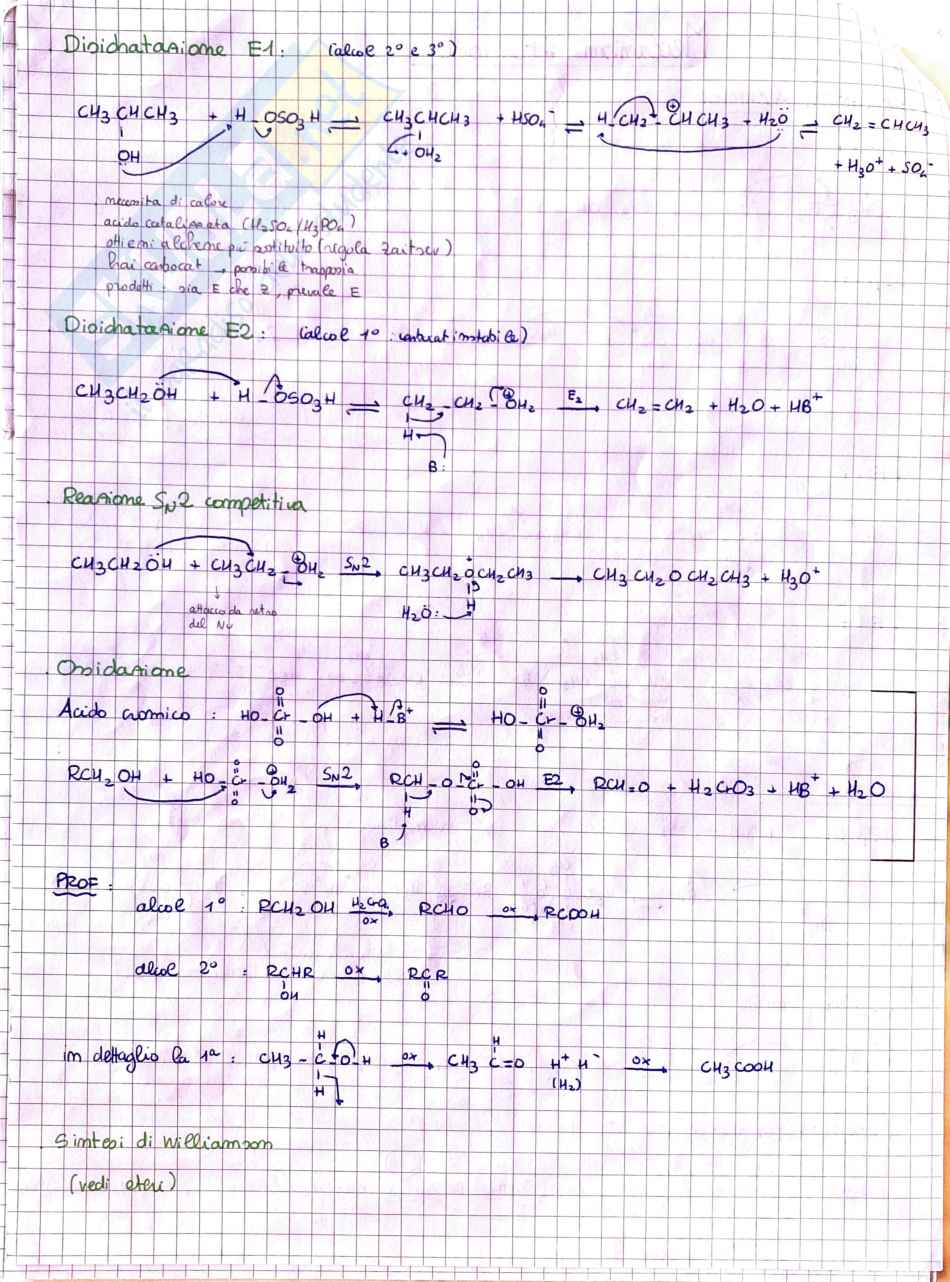 Disidratazione E1: (alcol 2° e 3°)
CH3CHCH3 + H-OSO3H ⇌ CH3CHCH3 + HSO4⁻ ⇌ H-CH2-CHCH3 + H2Ö ⇌ CH2=CHCH3
OH +OH2 ⊕ + H3O⁺ + SO4⁻
necessita di calore
acido catalizzata (H2SO4/H3PO4)
ottieni alchene più sostituito (regola Zaitsev)
hai carbocat → possibile trasposiz
prodotti: sia E che Z, prevale E
Disidratazione E2: (alcol 1°: carbocat instabile)
CH3CH2ÖH + H-OSO3H ⇌ CH2-CH2-⊕OH2 E2→ CH2=CH2 + H2O + HB⁺
H
B:
Reazione SN2 competitiva
CH3CH2ÖH + CH3CH2-⊕OH2 SN2→ CH3CH2O⁺CH2CH3 → CH3CH2OCH2CH3 + H3O⁺
attacco da retro H2Ö: H
del Nu
Ossidazione
O O
Acido cromico: HO-Cr-OH + H-B⁺ ⇌ HO-Cr-⊕OH2
O O
O O
RCH2OH + HO-Cr-⊕OH2 SN2→ RCH-O-Cr-OH E2→ RCH=O + H2CrO3 + HB⁺ + H2O
O H O
B
PROF:
alcol 1°: RCH2OH H2CrO4→ox RCHO ox→ RCOOH
alcol 2°: RCHR ox→ RCR
OH O
H H
in dettaglio la 1ª: CH3-C-O-H ox→ CH3C=O H⁺ H⁻ ox→ CH3COOH
H (H2)
Sintesi di Williamson
(vedi eteri)